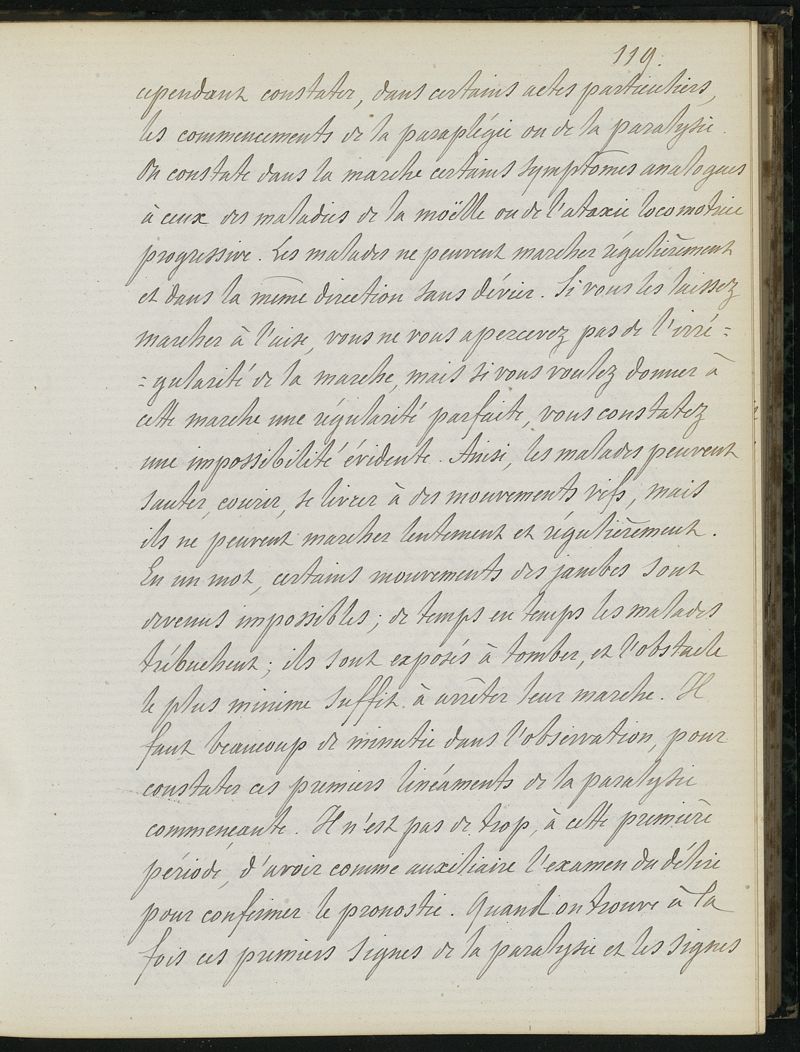 119.
cependant constater, dans certains actes particuliers,
les commencements de la paraplégie ou de la paralysie.
On constate dans la marche certains symptômes analogues
à ceux des maladies de la moëlle ou de l'ataxie locomotrice
progressive. Les malades ne peuvent marcher régulièrement
et dans la même direction sans dévier. Si vous les laissez
marcher à l'aise, vous ne vous apercevez pas de l'irré=
=gularité de la marche, mais si vous voulez donner à
cette marche une régularité parfaite, vous constatez
une impossibilité évidente. Ainsi, les malades peuvent
sauter, courir, se livrer à des mouvements vifs, mais
ils ne peuvent marcher lentement et régulièrement.
En un mot, certains mouvements des jambes sont
devenus impossibles; de temps en temps les malades
trébuchent; ils sont exposés à tomber, et l'obstacle
le plus minime suffit à arrêter leur marche. Il
faut beaucoup de minutie dans l'observation, pour
constater ces premiers linéaments de la paralysie
commencante. Il n'est pas de trop, à cette première
période, d'avoir comme auxiliaire l'examen du délire
pour confirmer le pronostic. Quand on trouve à la
fois ces premiers signes de la paralysie et les signes